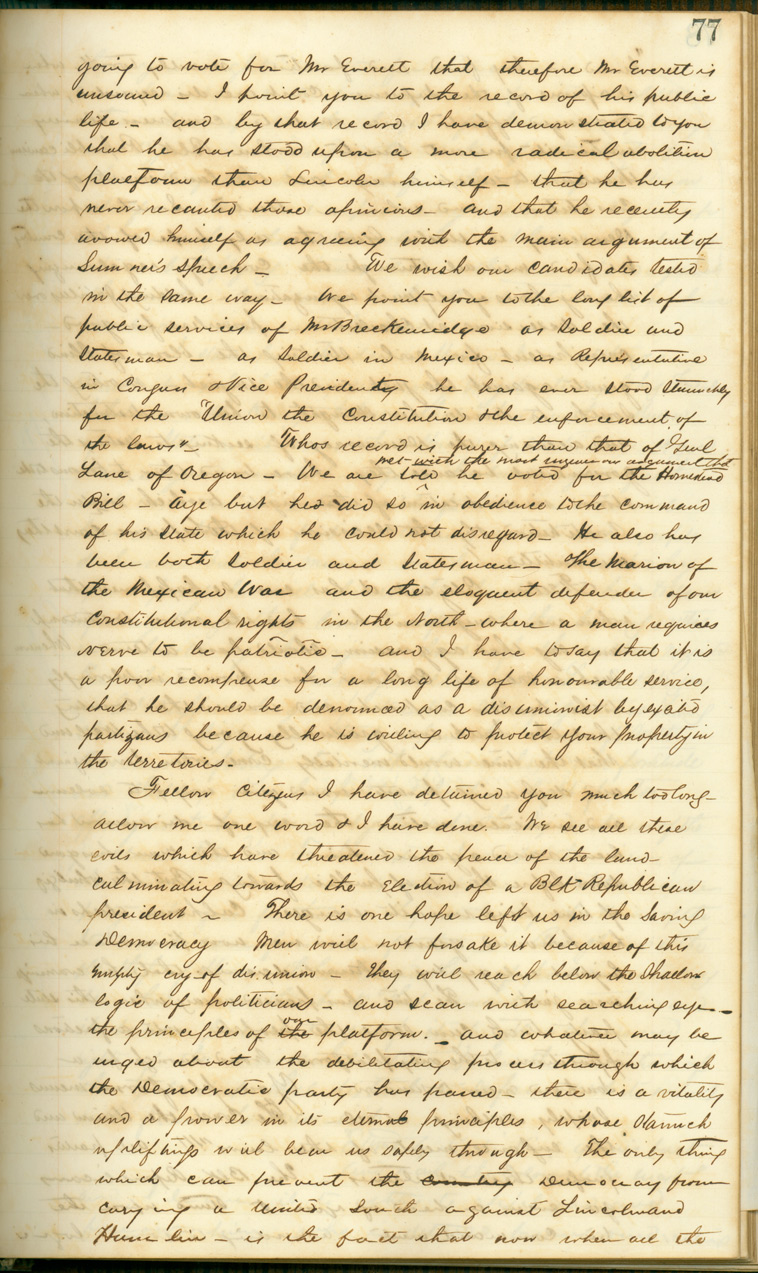 77
going to vote for Mr Everett that therefore Mr Everett is
unsound - I point you to the record of his public
life - and by that record I have demonstrated to you
that he has stood upon a more radical abolition
platform than Lincoln himself - that he has
never recanted those opinions - and that he recently
avowed himself as agreeing with the main argument of
Sumner's speech - We wish our candidates tested
in the same way - We point you to the long list of
public services of Mr Breckenridge as Soldier and
Statesman - as Soldier in Mexico - as Representative
in Congress & Vice President he has ever stood staunchly
for the "Union the Constitution & the enforcement of
the laws" - Whos record is purer than that of Genl
met with the most argument that
Lane of Oregon - We are told he voted for the Homestead
Bill - Aye but he did so in obedience to the command
of his State which he could not disregard - He also has
been both Soldier and Statesman - The Marion of
the Mexican War and the eloquent defender of our
Constitutional rights in the North - where a man requires
nerve to be patriotic - and I have to say that it is
a poor recompense for a long life of honourable service,
that he should be denounced as a disunionist by
partizans because he is willing to protect your property in
the territories -
Fellow Citizens I have detained you much too long -
allow me one word & I have done. We see all these
evils which have threatened the peace of the land
culminating towards the Election of a Blk Republican
president - There is one hope left us in the Saving
Democracy Men will not forsake it because of this
empty cry of disunion - They will reach below the Shallow
logic of politicians - and scan with searching eye -
our
the principles of the platform. - and whatever may be
urged about the debilitating process through which
the Democratic party has passed - there is a vitality
and a power in its eternal principles, whose staunch
upliftings will bear us safely through - The only thing
which can prevent the country Democracy from
carying a United South against Lincoln and
Hamlin - is the fact that now when all the